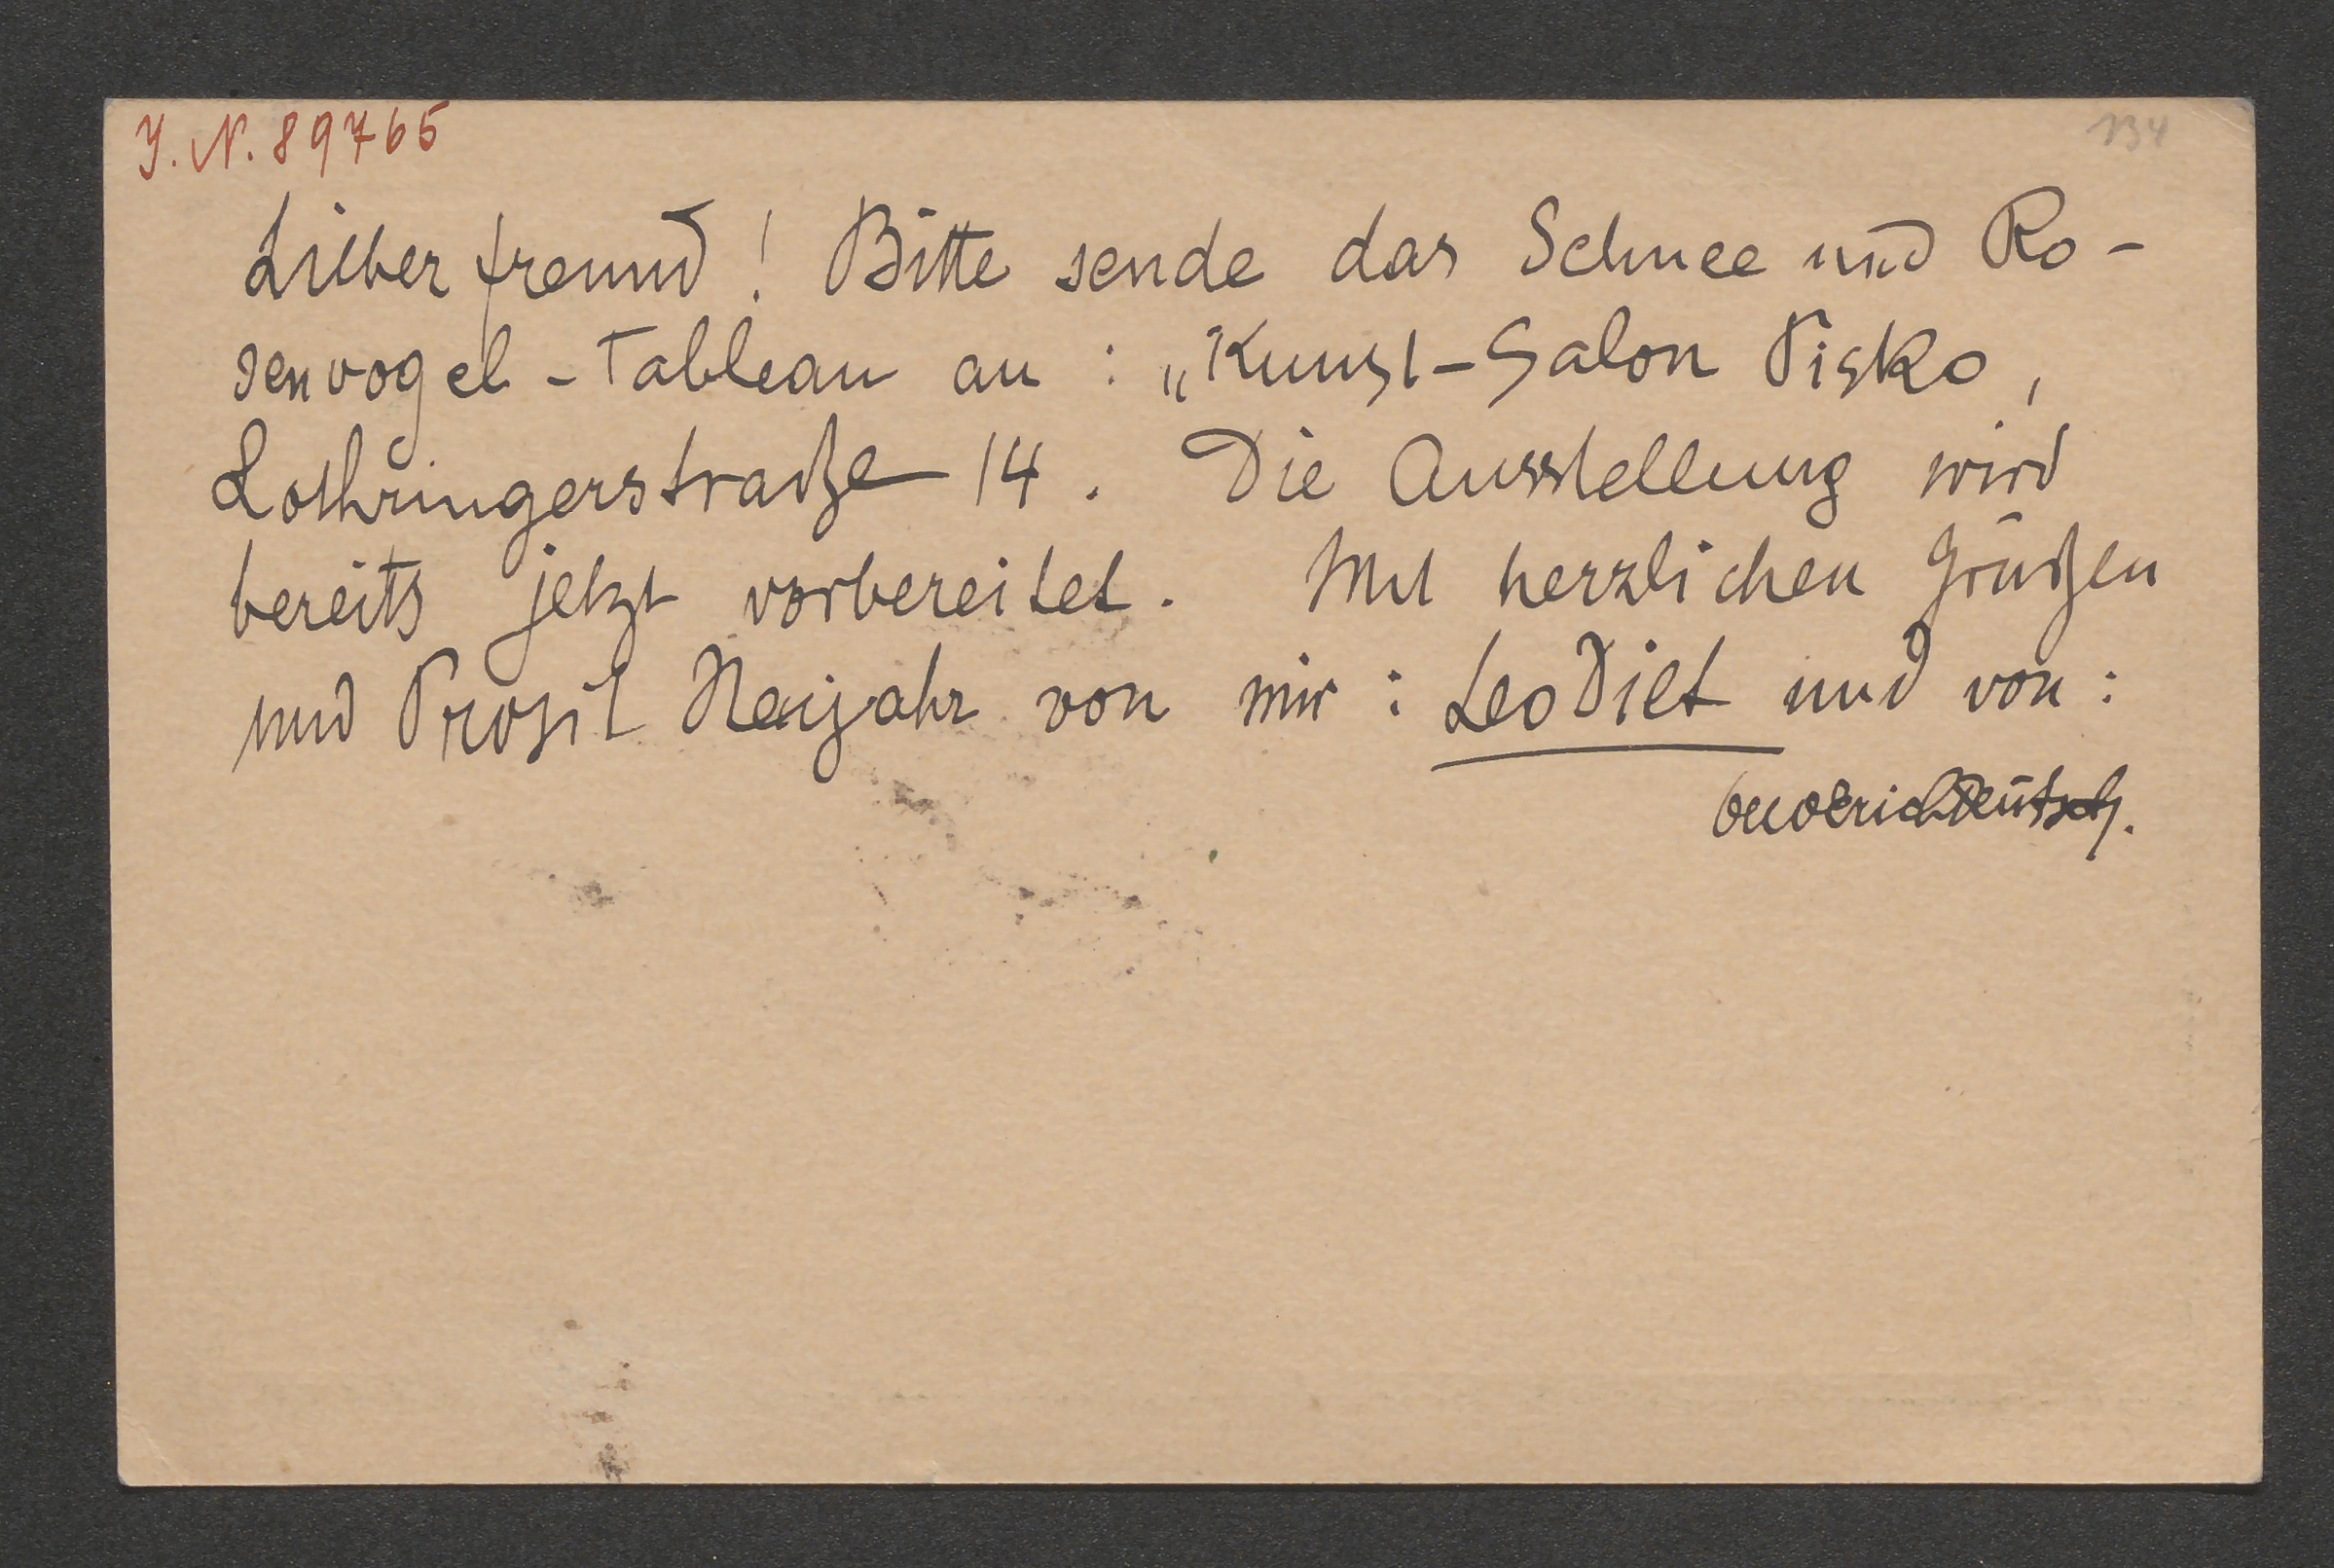 J. N. 89765
134
Lieber Freund! Bitte sende das Schnee und Ro-
senvogel-Tableau an: „Kunst-Salon Pisko,
Lothringerstraße 14. Die Ausstellung wird
bereits jetzt vorbereitet. Mit herzlichen Grüßen
und Prosit Neujahr von mir: Leo Diet und von:
Otto Erich Deutsch.